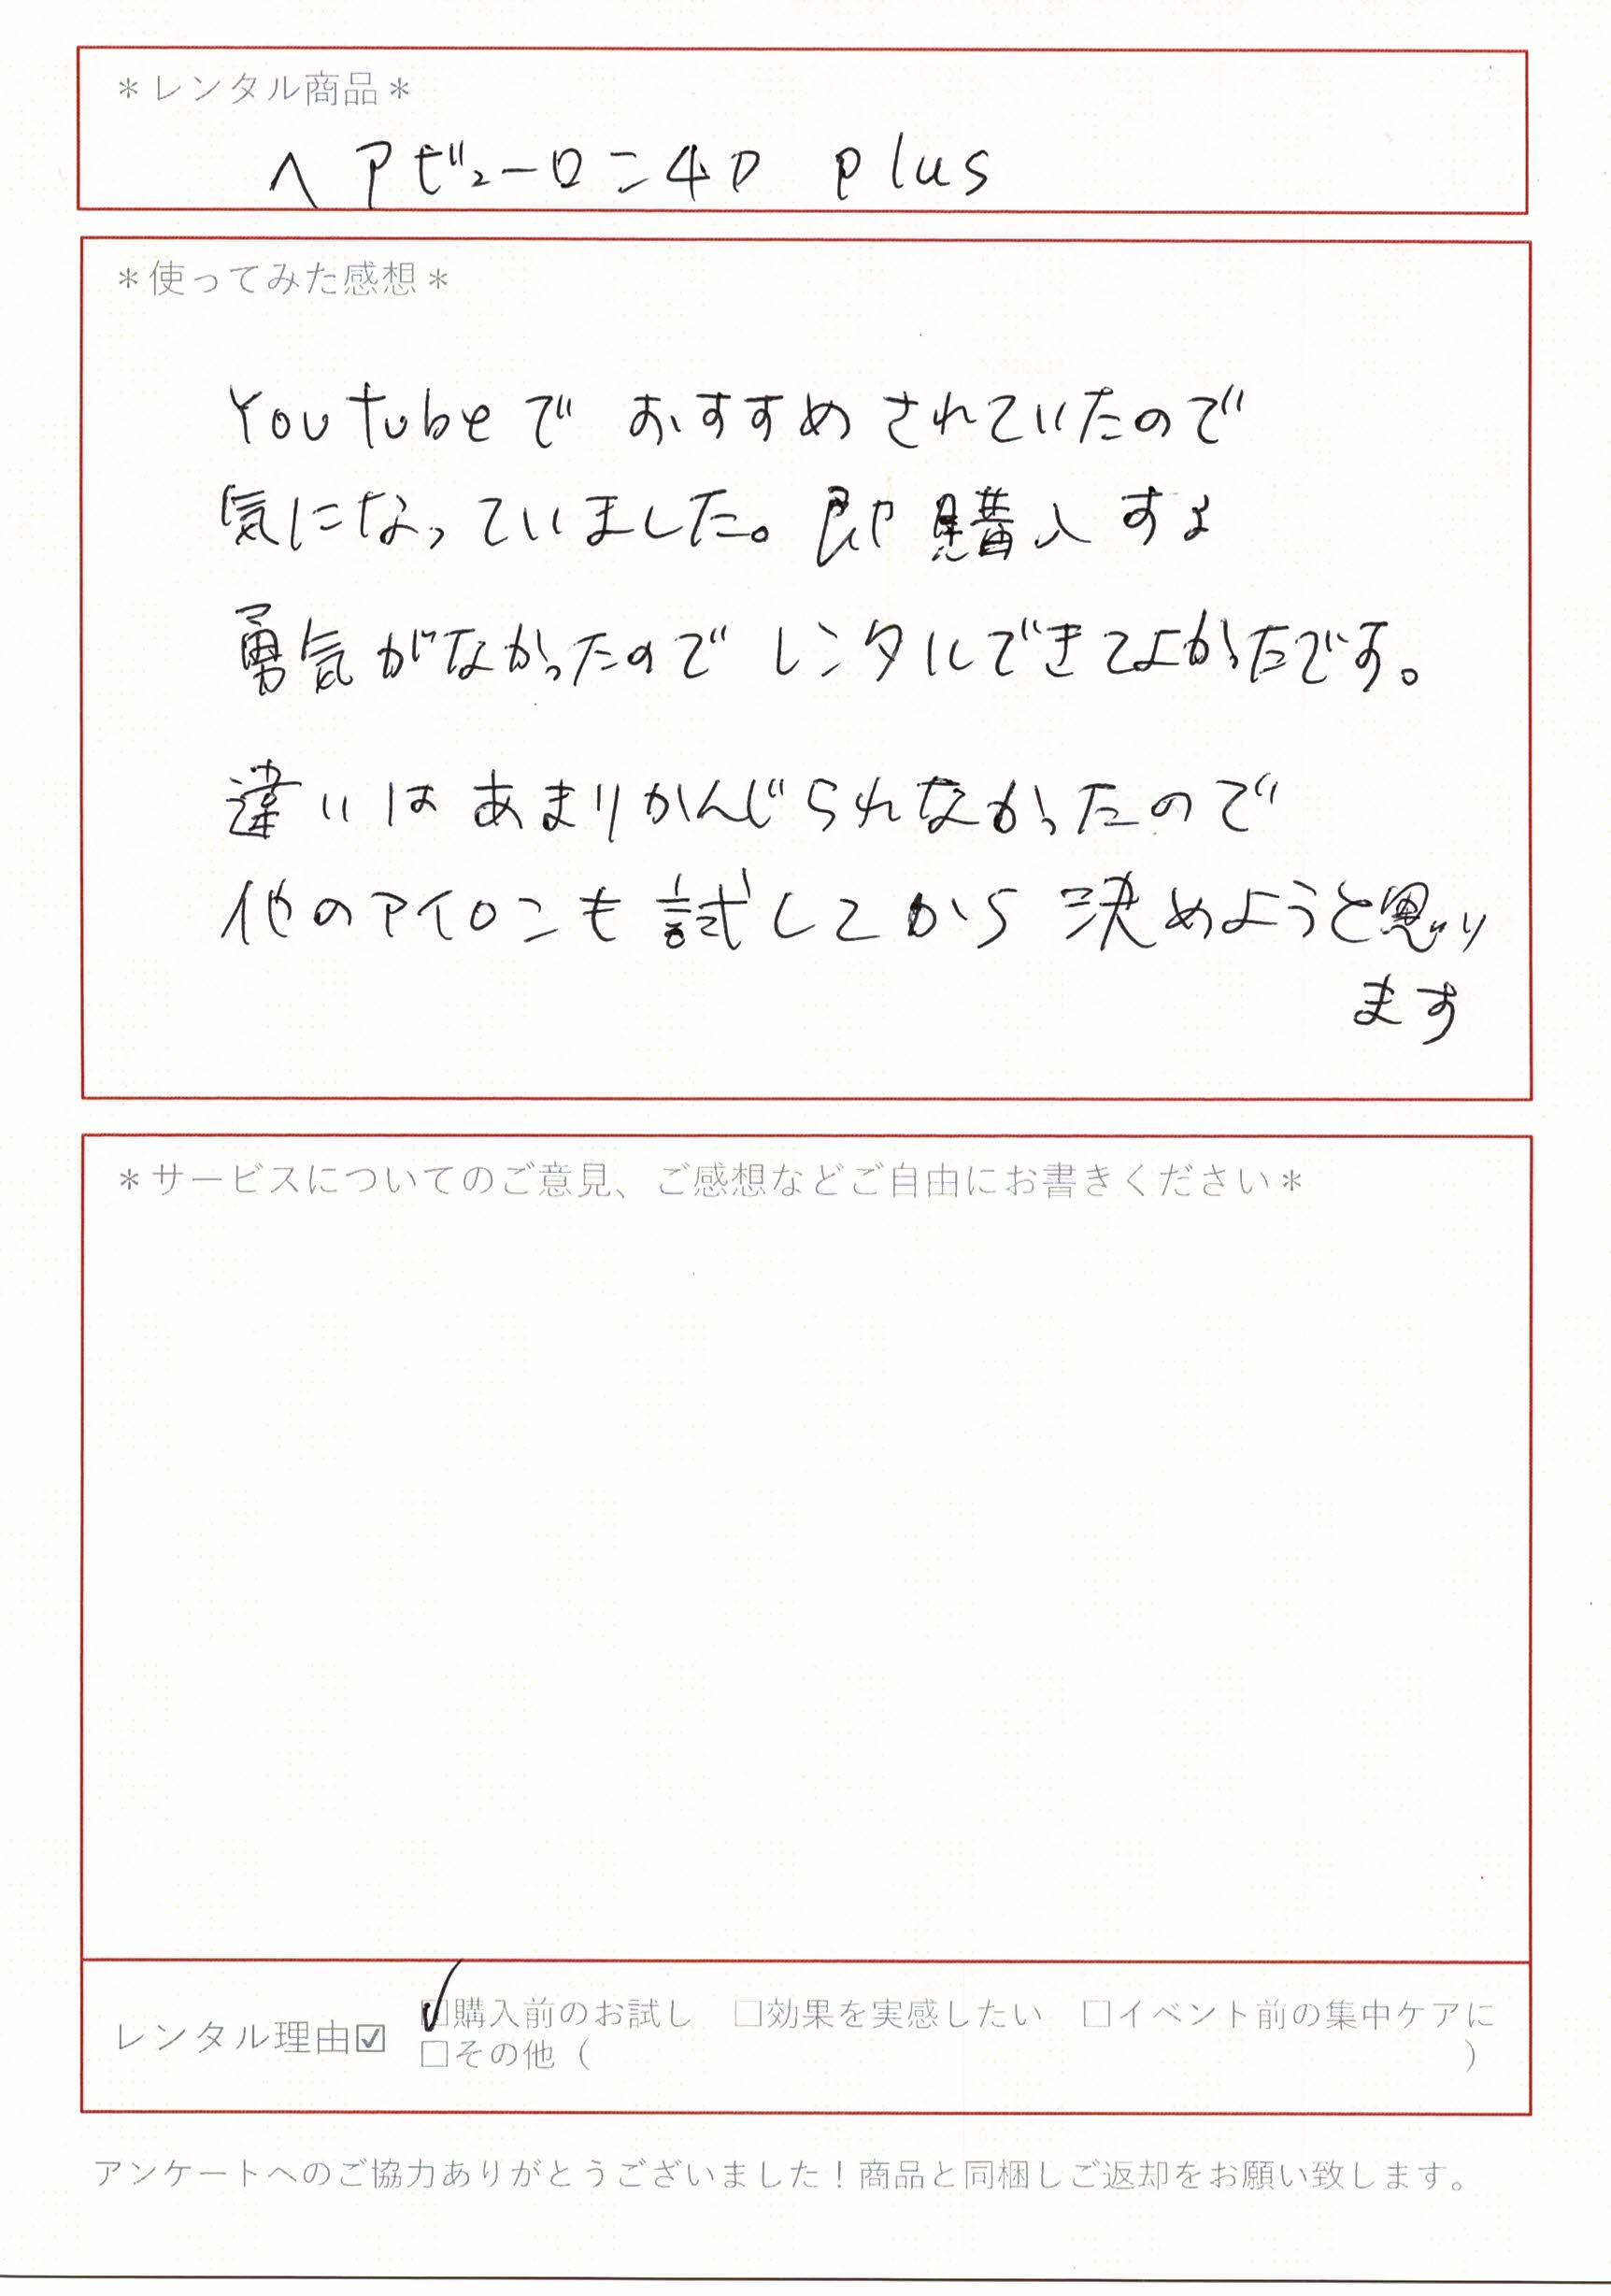 ＊レンタル商品＊
ヘアビューロン4D plus
＊使ってみた感想＊
Youtubeで おすすめ されていたので
気になっていました。即購入する
勇気がなかったので レンタルできてよかったです。
違いはあまりかんじられなかったので
他のアイロンも試してから 決めようと思い
ます
＊サービスについてのご意見、ご感想などご自由にお書きください＊
レンタル理由☑ ☑購入前のお試し □効果を実感したい □イベント前の集中ケアに
□その他（ ）
アンケートへのご協力ありがとうございました！商品と同梱しご返却をお願い致します。